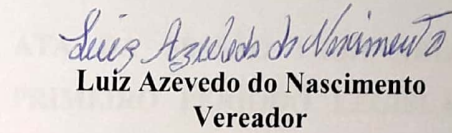 Luiz Azevedo do Nascimento
Luiz Azevedo do Nascimento
Vereador